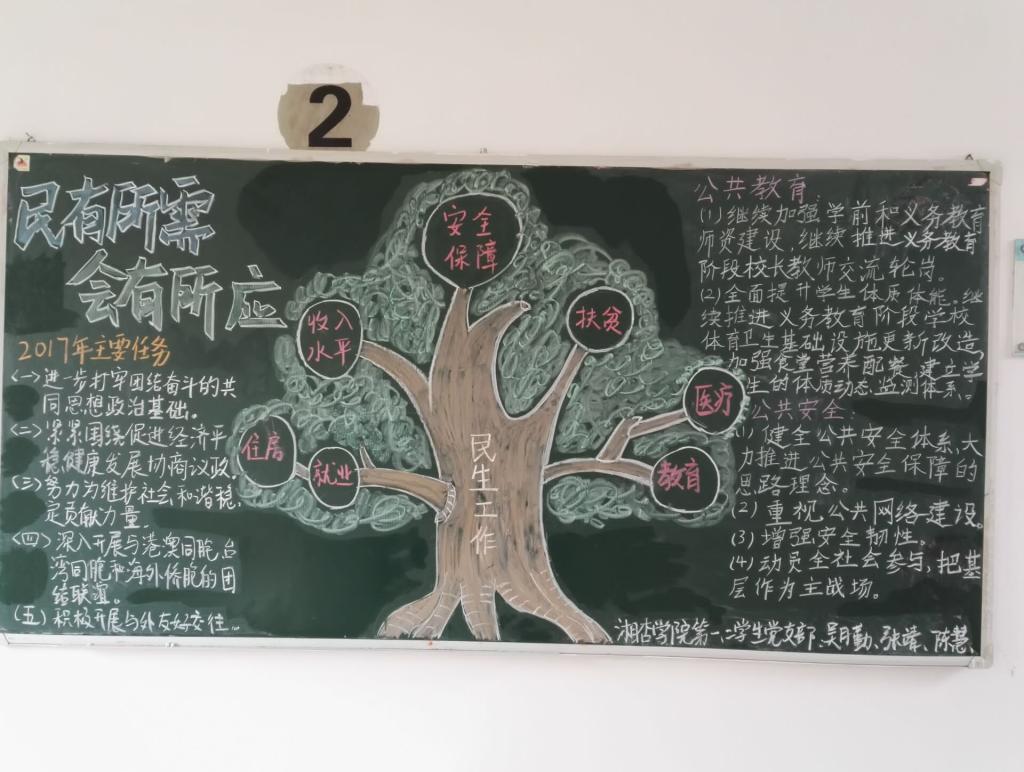 2
民有所需
会有所应
2017年主要任务
(一)进一步打牢团结奋斗的共
同思想政治基础。
(二)紧紧围绕促进经济平
稳健康发展协商议政。
(三)努力为维护社会和谐稳
定贡献力量。
(四)深入开展与港澳同胞、台
湾同胞和海外侨胞的团
结联谊。
(五)积极开展与外友好交往。
安全
保障
收入
水平
扶贫
医疗
住房
就业
教育
民生工作
公共教育
(1)继续加强学前和义务教育
师资建设,继续推进义务教育
阶段校长教师交流轮岗。
(2)全面提升学生体质体能。继
续推进义务教育阶段学校
体育卫生基础设施更新改造,
加强食堂营养配餐,建立学
生的体质动态监测体系。
公共安全
(1)健全公共安全体系,大
力推进公共安全保障的
思路理念。
(2)重视公共网络建设。
(3)增强安全韧性。
(4)动员全社会参与,把基
层作为主战场。
湘杏学院第一学生党支部、吴月勤、张 、陈慧、